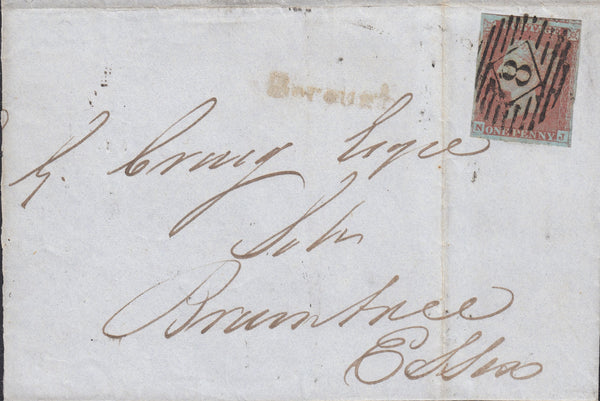 8
N ONE PENNY J
Borough
G. Craig Esqre
Solr
Braintree
Essex